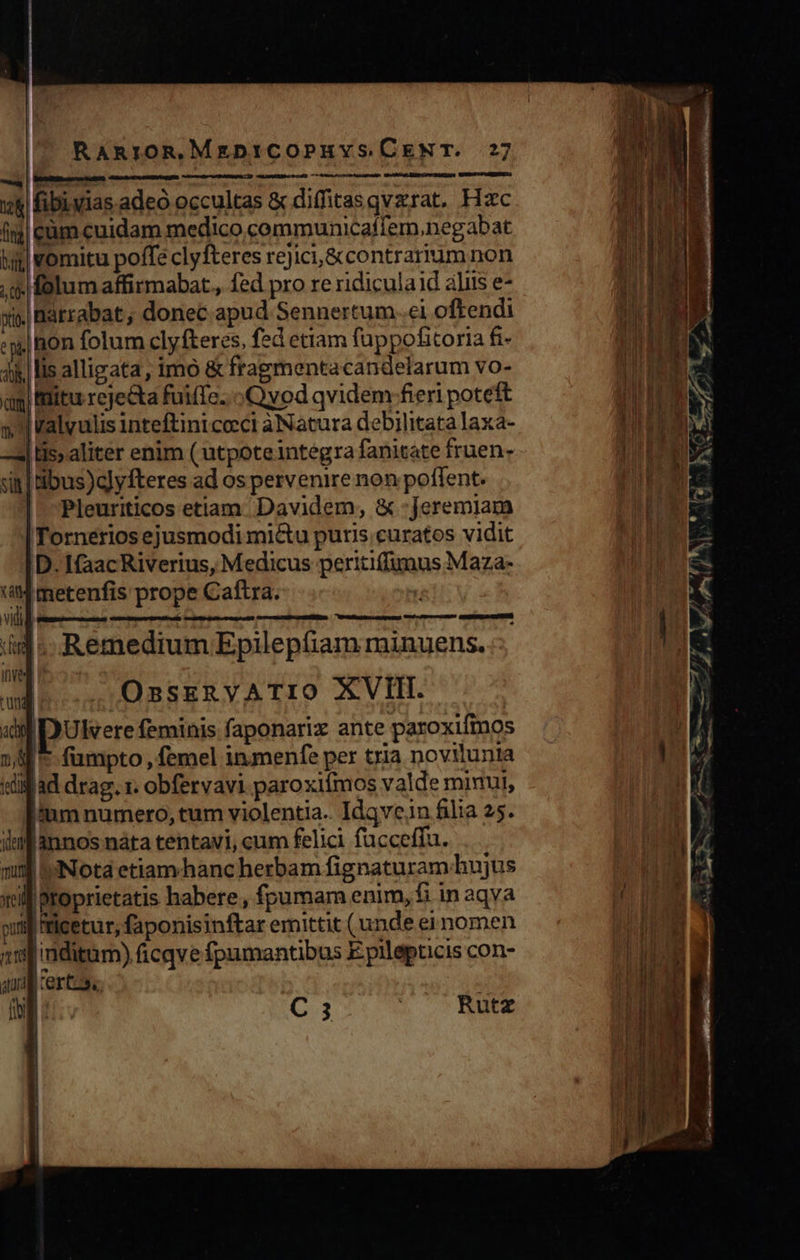 RARIOR. MEDICOPHYS. CENT. 27
ſibi vias adeò occultas & diſſitas qværat. Hæc
cùm cuidam medico communicaſſem, negabat
vomitu poſſe clyſteres rejici, & contrarium non
ſolum affirmabat, ſed pro re ridicula id aliis e-
narrabat; donec apud Sennertum ei oſtendi
non ſolum clyſteres, ſed etiam ſuppoſitoria fi-
lis alligata, imò & fragmenta candelarum vo-
mitu rejecta fuiſſe. Qvod qvidem fieri poteſt
valvulis inteſtini cœci à Natura debilitata laxa-
tis, aliter enim (utpote integra ſanitate fruen-
tibus) clyſteres ad os pervenire non poſſent.
Pleuriticos etiam Davidem, & Jeremiam
Tornerios ejusmodi mictu puris curatos vidit
D. Iſaac Riverius, Medicus peritiſſimus Maza-
metenſis prope Caſtra.
Remedium Epilepſiam minuens.
OBSERVATIO XVIII.
PUlvere ſeminis ſaponariæ ante paroxiſmos
ſumpto, ſemel in menſe per tria novilunia
ad drag. 1. obſervavi paroxiſmos valde minui,
tum numero, tum violentia. Idqve in filia 25.
annos nata tentavi, cum felici ſucceſſu.
Nota etiam hanc herbam ſignaturam hujus
proprietatis habere, ſpumam enim, ſi in aqva
fricetur, ſaponis inſtar emittit (unde ei nomen
inditum) ſicqve ſpumantibus Epilepticis con-
fertur.
C 3 Rutæ